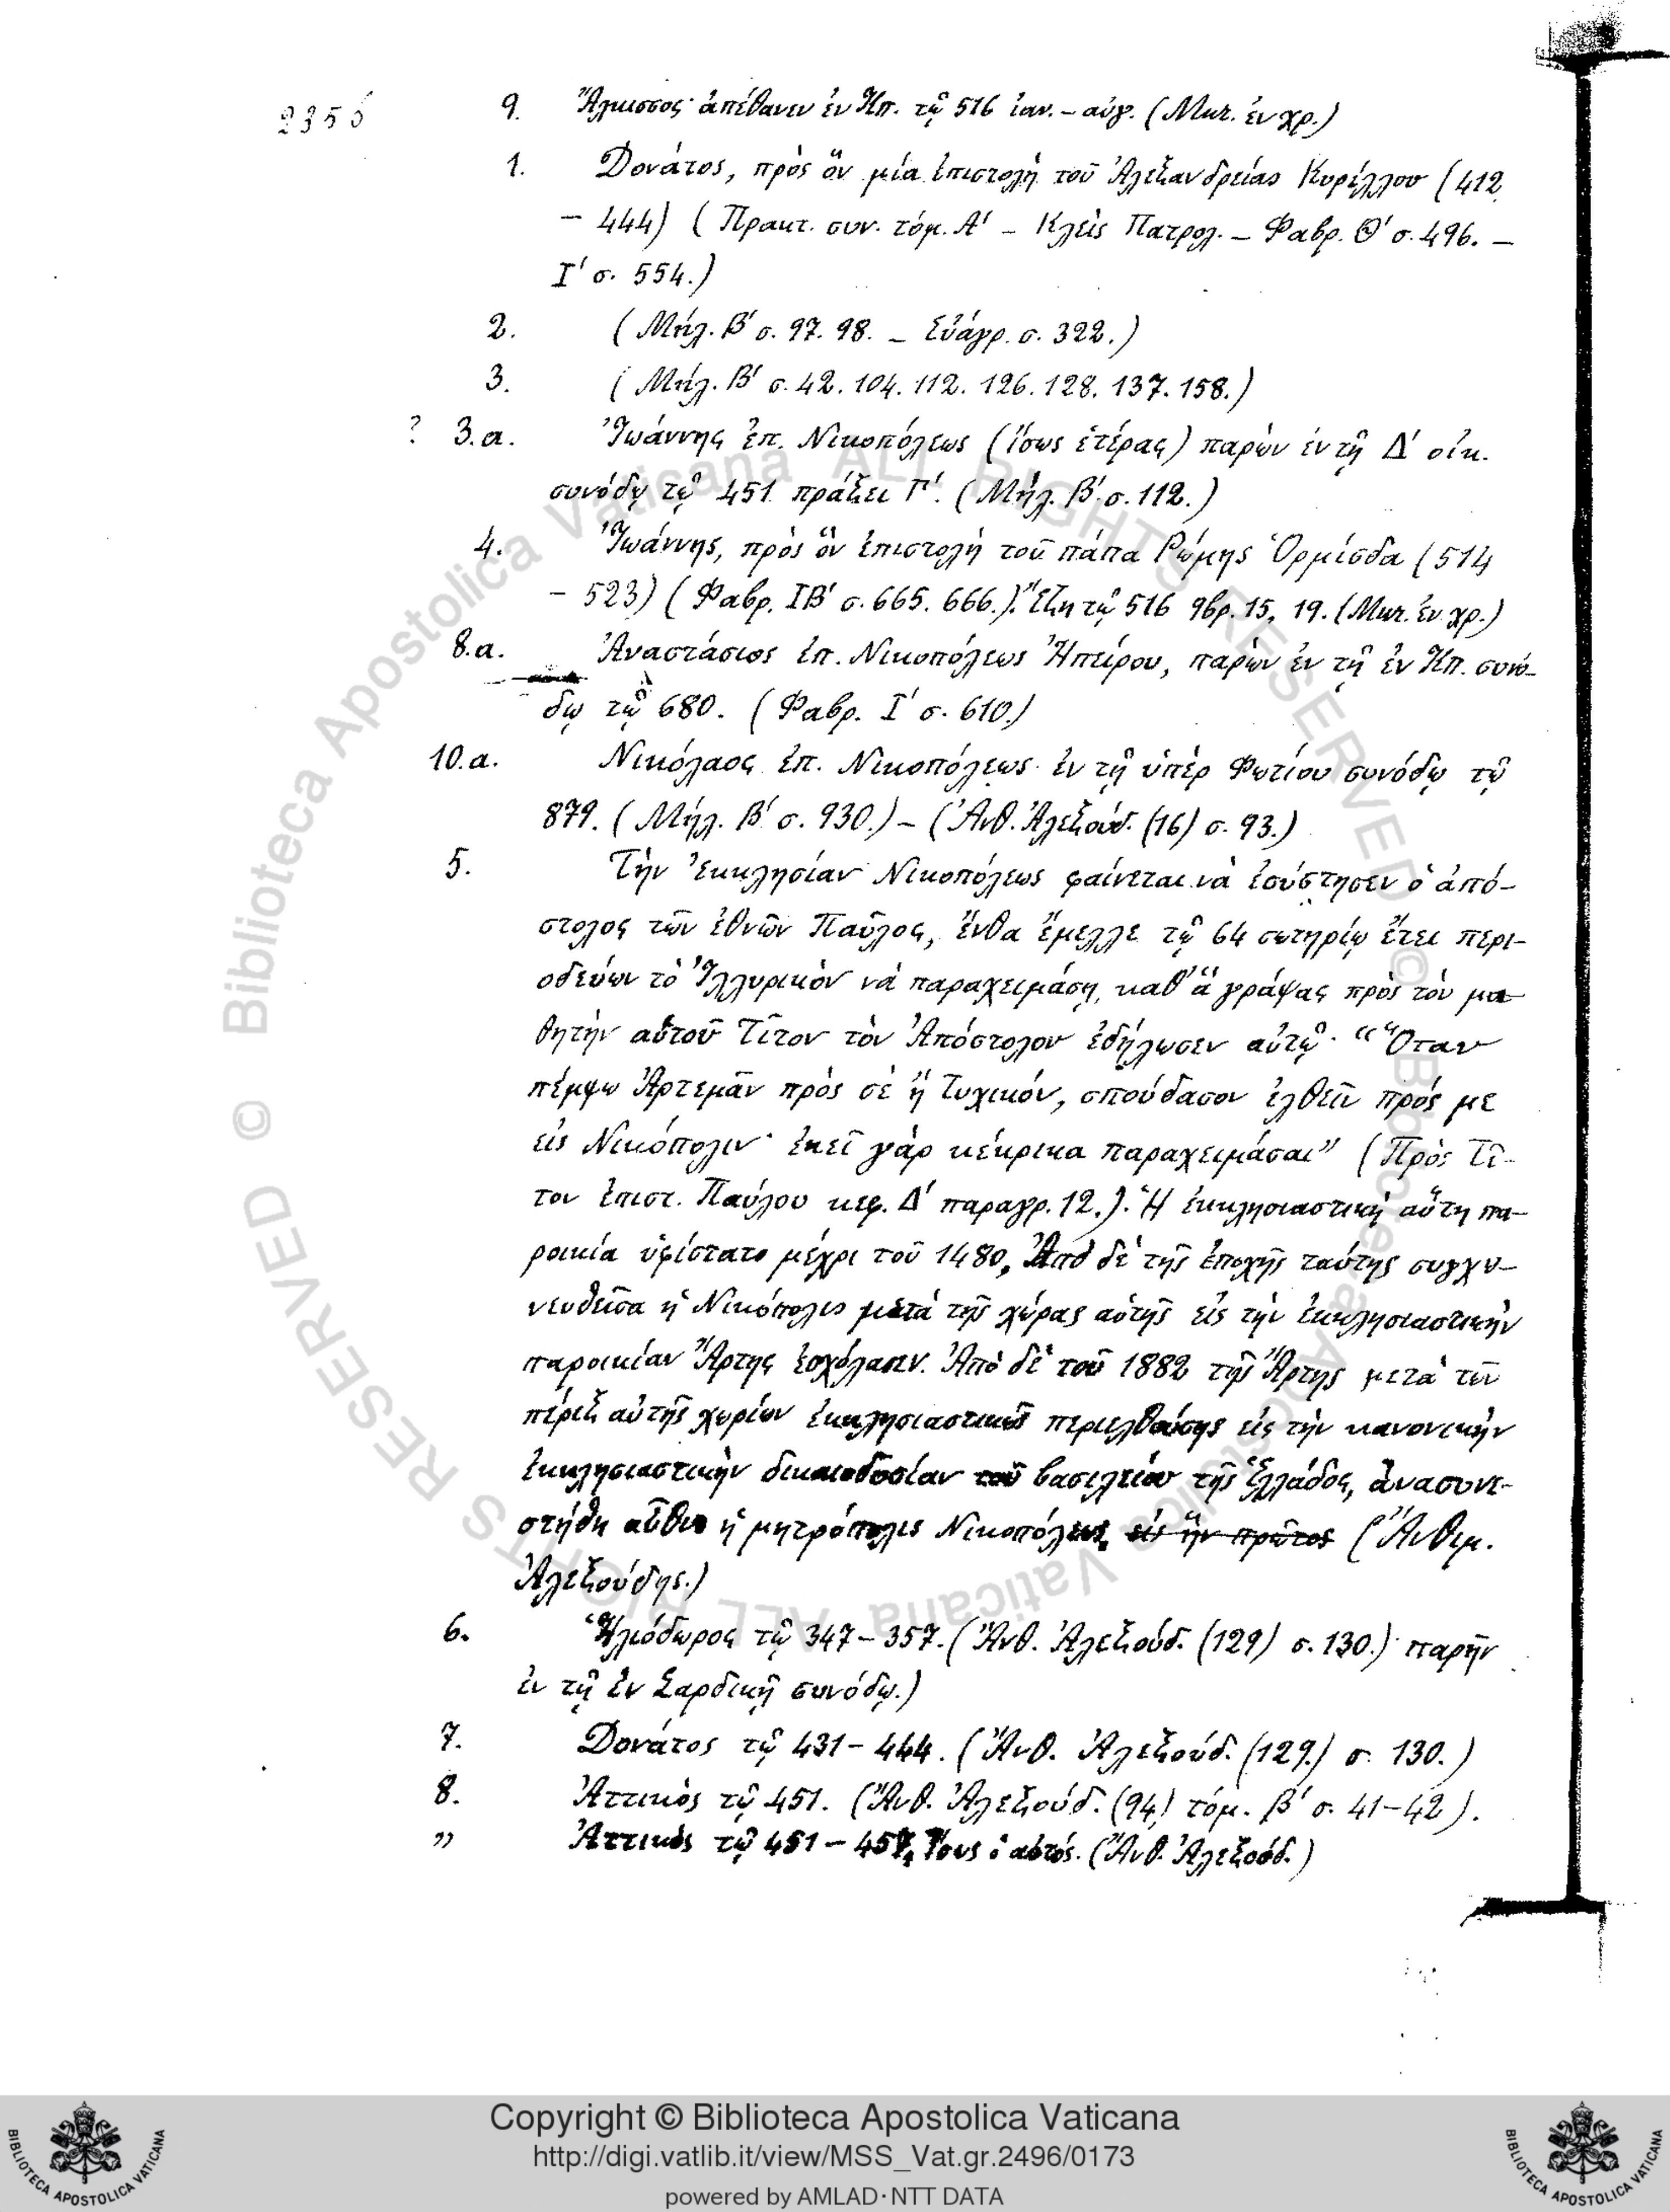 2355
9. Ἄλκισσος· ἀπέθανεν ἐν Κπ. τῷ 516 ἰαν. – αὐγ. (Μικ. ἐν χρ.)
1. Δονάτος, πρὸς ὃν μία ἐπιστολὴ τοῦ Ἀλεξανδρείας Κυρίλλου (412
– 444) (Πρακτ. συν. τόμ. Α' – Κλεὶς Πατρολ. – Φαβρ. Θ' σ. 496. –
Ι' σ. 554.)
2. (Μήλ. Β' σ. 97. 98. – Εὐάγρ. σ. 322.)
3. (Μήλ. Β' σ. 42. 104. 112. 126. 128. 137. 158.)
? 3.α. Ἰωάννης ἐπ. Νικοπόλεως (ἴσως ἑτέρας) παρὼν ἐν τῇ Δ' οἰκ.
συνόδῳ τῷ 451 πράξει Γ'. (Μήλ. Β' σ. 112.)
4. Ἰωάννης, πρὸς ὃν ἐπιστολὴ τοῦ πάπα Ρώμης Ὁρμίσδα (514
– 523) (Φαβρ. ΙΒ' σ. 665. 666.). Ἔζη τῷ 516 9βρ. 15, 19. (Μικ. ἐν χρ.)
8.α. Ἀναστάσιος ἐπ. Νικοπόλεως Ἠπείρου, παρὼν ἐν τῇ ἐν Κπ. συνό–
δῳ τῷ 680. (Φαβρ. Ι' σ. 610.)
10.α. Νικόλαος ἐπ. Νικοπόλεως ἐν τῇ ὑπὲρ Φωτίου συνόδῳ τῷ
879. (Μήλ. Β' σ. 930.) – (Ἀνθ. Ἀλεξούδ. (16) σ. 93.)
5. Τὴν Ἐκκλησίαν Νικοπόλεως φαίνεται νὰ ἐσύστησεν ὁ ἀπό–
στολος τῶν ἐθνῶν Παῦλος, ἔνθα ἔμελλε τῷ 64 σωτηρίῳ ἔτει περι–
οδεύων τὸ Ἰλλυρικὸν νὰ παραχειμάσῃ, καθ' ἃ γράψας πρὸς τὸν μα–
θητὴν αὐτοῦ Τῖτον τὸν Ἀπόστολον ἐδήλωσεν αὐτῷ· “Ὅταν
πέμψω Ἀρτεμᾶν πρὸς σὲ ἢ Τυχικόν, σπούδασον ἐλθεῖν πρός με
εἰς Νικόπολιν· ἐκεῖ γὰρ κέκρικα παραχειμάσαι” (Πρὸς Τῖ–
τον ἐπιστ. Παύλου κεφ. Δ' παραγρ. 12.). Ἡ ἐκκλησιαστικὴ αὕτη πα–
ροικία ὑφίστατο μέχρι τοῦ 1480, Ἀπὸ δὲ τῆς ἐποχῆς ταύτης συγχω–
νευθεῖσα ἡ Νικόπολις μετὰ τῆς χώρας αὐτῆς εἰς τὴν ἐκκλησιαστικὴν
παροικίαν Ἄρτης ἐσχόλασεν. Ἀπὸ δὲ τοῦ 1882 τῆς Ἄρτης μετὰ τῶν
πέριξ αὐτῆς χωρίων ἐκκλησιαστικῶς περιελθούσης εἰς τὴν κανονικὴν
ἐκκλησιαστικὴν δικαιοδοσίαν τοῦ βασιλείου τῆς Ἑλλάδος, ἀνασυνε–
στήθη αὖθις ἡ μητρόπολις Νικοπόλεως, εἰς ἣν πρῶτος (Ἄνθιμ.
Ἀλεξούδης.)
6. Ἡλιόδωρος τῷ 347 – 357. (Ἄνθ. Ἀλεξούδ. (129) σ. 130.) παρῆν
ἐν τῇ ἐν Σαρδικῇ συνόδῳ.)
7. Δονάτος τῷ 431 – 444. (Ἄνθ. Ἀλεξούδ. (129.) σ. 130.)
8. Ἀττικὸς τῷ 451. (Ἄνθ. Ἀλεξούδ. (94) τόμ. β' σ. 41–42).
” Ἀττικὸς τῷ 451 – 457, ἴσως ὁ αὐτός. (Ἄνθ. Ἀλεξούδ.)
© Biblioteca Apostolica Vaticana ALL RIGHTS RESERVED © Biblioteca Apostolica Vaticana ALL RIGHTS RESERVED
Copyright © Biblioteca Apostolica Vaticana
http://digi.vatlib.it/view/MSS_Vat.gr.2496/0173
powered by AMLAD·NTT DATA
BIBLIOTECA APOSTOLICA VATICANA
BIBLIOTECA APOSTOLICA VATICANA